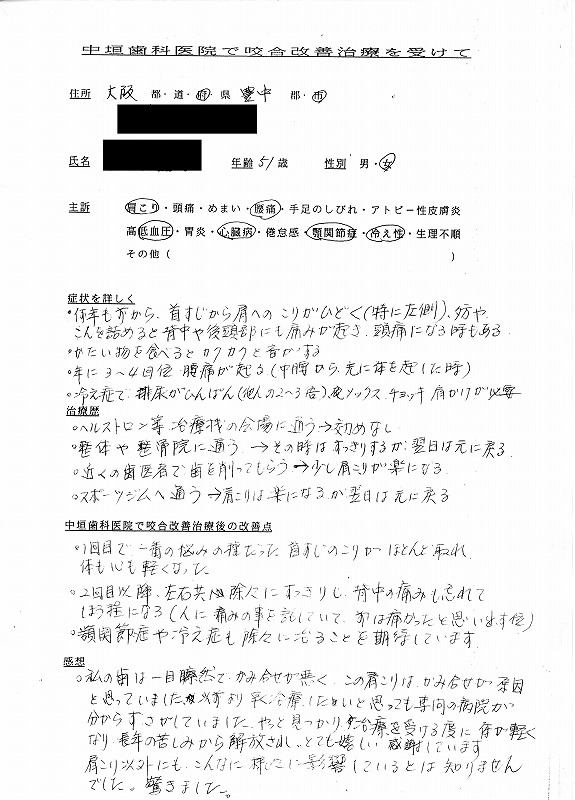 中垣歯科医院で咬合改善治療を受けて
住所 大阪 都・道・府・県 豊中 郡・市
氏名 年齢 51歳 性別 男・女
主訴 肩こり・頭痛・めまい・腰痛・手足のしびれ・アトピー性皮膚炎
高低血圧・胃炎・心臓病・倦怠感・顎関節症・冷え性・生理不順
その他( )
症状を詳しく
・何年も前から、首すじから肩へのこりがひどく(特に左側)、
こんを詰めると背中や後頭部にも痛みが起き、頭痛になる時もある
・かたい物を食べるとカクカクと音がする
・年に3~4回位 腰痛が起る(中腰から、先に体を起した時)
・冷え症で、排尿がひんぱん(他人の2~3倍)、夜ソックス、チョッキ 肩かけが必要
治療歴
・ヘルストロン等治療機の会場に通う→効めなし
・整体や整骨院に通う →その時はすっきりするが翌日は元に戻る
・近くの歯医者で歯を削ってもらう→少し肩こりが楽になる
・スポーツジムへ通う→肩こりは楽になるが翌日は元に戻る
中垣歯科医院で咬合改善治療後の改善点
・1回目で一番の悩みの種だった 首すじのこりがほとんど取れ
体も心も軽くなった
・2回目以降、左右共、除々にすっきりし、背中の痛みも忘れて
しまう程になる(人に痛みの事を話していて、前は痛かったと思い出す位)
・顎関節症や冷え症も除々に治ることを期待しています
感想
・私の歯は一目瞭然で、かみ合せが悪く、この肩こりは、かみ合せが原因
と思っていました 以前より 治療したいと思っても専門の病院が
分からずさがしていました。やっと見つかり 治療を受ける度に 体が軽く
なり、長年の苦しみから解放され、とても嬉しい 感謝しています
肩こり以外にも、こんなに 体に影響しているとは知りません
でした。驚きました。